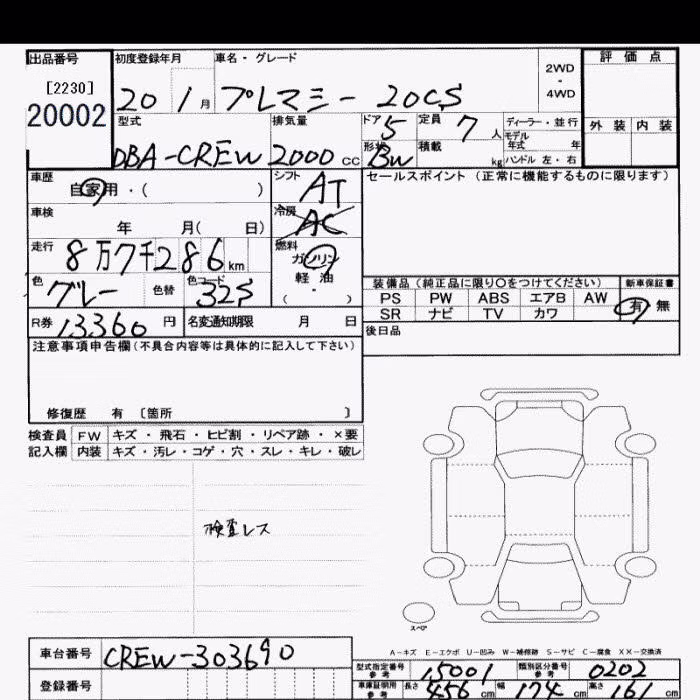 出品番号
[2230]
20002
初度登録年月
20 1 月
車名・グレード
プレマシー 20CS
2WD
・
4WD
評価点
外装 内装
型式
DBA-CREW
排気量
2000 cc
ドア 5
定員 7 人
ディーラー・並行
モデル
年式 年
形状 BW
積載 kg
ハンドル 左・右
車歴
自家用・( )
シフト
AT
セールスポイント (正常に機能するものに限ります)
車検
年 月( 日)
冷房
AC
走行
8万7千286 km
燃料
ガソリン
軽油
( ・ )
色
グレー
色替
色コード
32S
装備品 (純正品に限り〇をつけてください)
新車保証書
PS PW ABS エアB AW
SR ナビ TV カワ
有 無
R券 13360 円
名変通知期限 月 日
後日品
注意事項申告欄 (不具合内容等は具体的に記入して下さい)
修復歴 有 〔箇所 〕
検査員 FW キズ・飛石・ヒビ割・リペア跡・×要
記入欄 内装 キズ・汚レ・コゲ・穴・スレ・キレ・破レ
検査レス
スペア
A-キズ E-エクボ U-凹み W-補修跡 S-サビ C-腐食 XX-交換済
車台番号 CREW-303690
型式指定番号
参考
15001
類別区分番号
参考
0202
登録番号
車庫証明用
参考
長さ 456 cm 幅 174 cm 高さ 161 cm